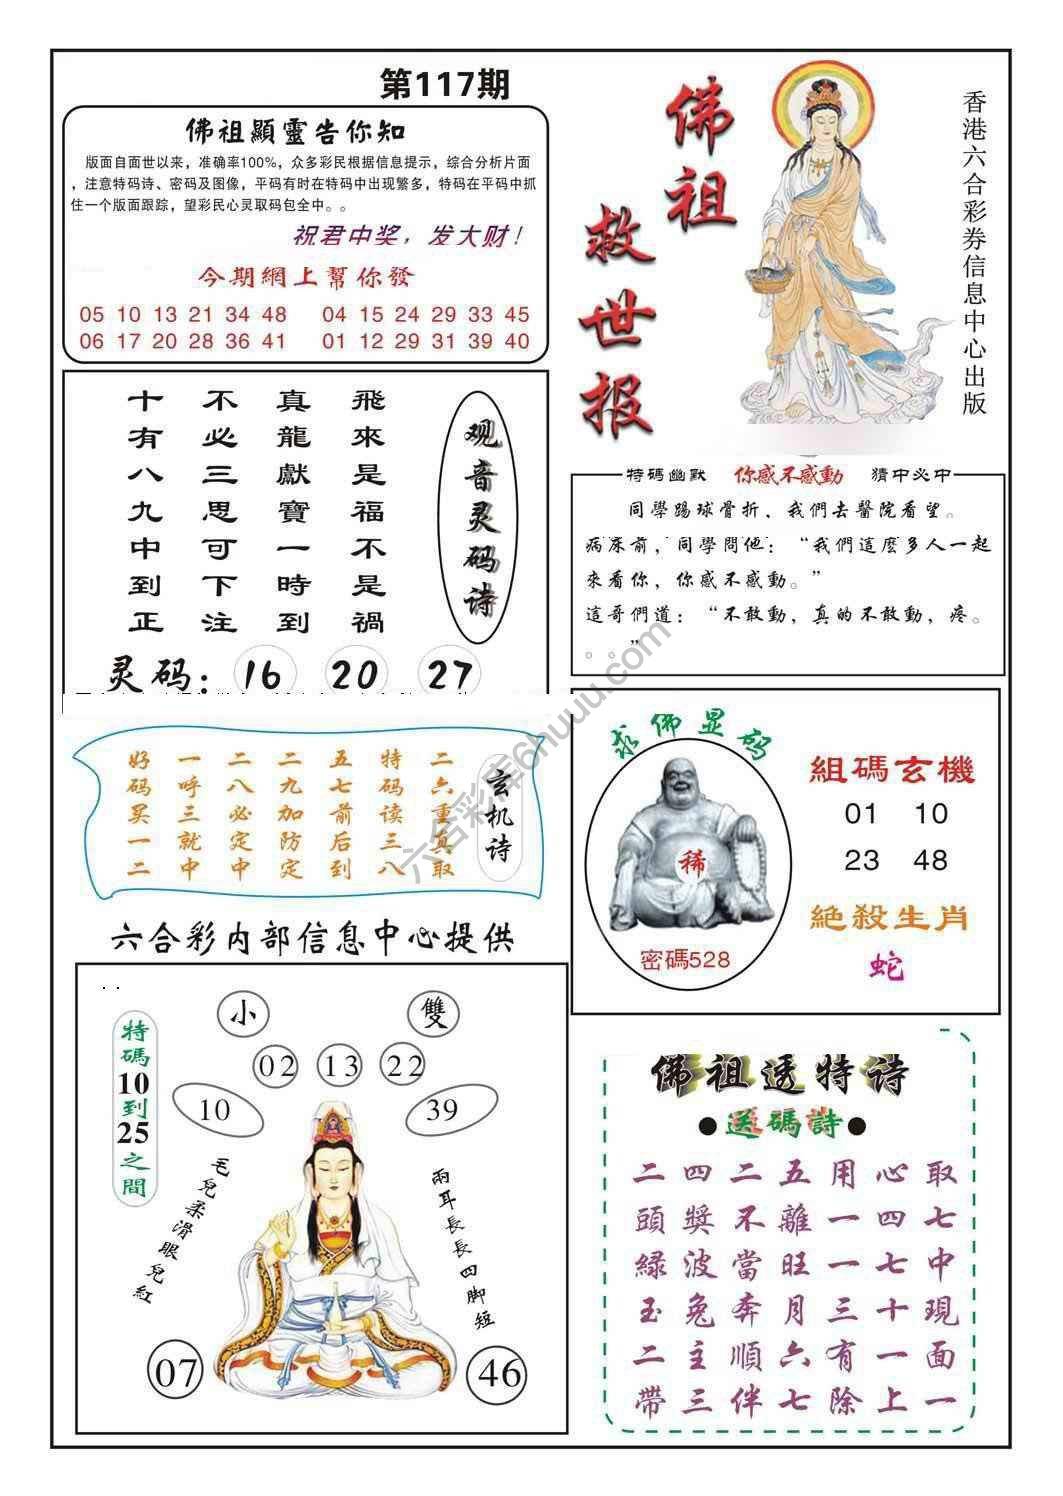 第117期
佛祖顯靈告你知
版面自面世以来，准确率100%，众多彩民根据信息提示，综合分析片面
，注意特码诗、密码及图像，平码有时在特码中出现繁多，特码在平码中抓
住一个版面跟踪，望彩民心灵取码包全中。。
祝君中奖，发大财！
今期網上幫你發
05 10 13 21 34 48 04 15 24 29 33 45
06 17 20 28 36 41 01 12 29 31 39 40
佛祖
救世报
香港六合彩券信息中心出版
观音灵码诗
飛來是福不是禍
真龍獻寶一時到
不必三思可下注
十有八九中到正
灵码：16 20 27
特碼幽默 你感不感動 猜中必中
同學踢球骨折，我們去醫院看望。
病床前，同學問他：“我們這麽多人一起
來看你，你感不感動。”
這哥們道：“不敢動，真的不敢動，疼。
。。”
玄机诗
二六重真取
特码读三八
五七前后到
二九加防定
二八必定中
一呼三就中
好码买一二
求佛显码
稀
密碼528
組碼玄機
01 10
23 48
絕殺生肖
蛇
六合彩内部信息中心提供
小 雙
02 13 22
10 39
特碼10到25之間
毛兒柔滑眼兒紅
兩耳長長四脚短
07 46
佛祖透特诗
●送碼詩●
二四二五用心取
頭獎不離一四七
緑波當旺一七中
玉兔奔月三十現
二主順六有一面
帶三伴七除上一
六合彩库6huuu.com